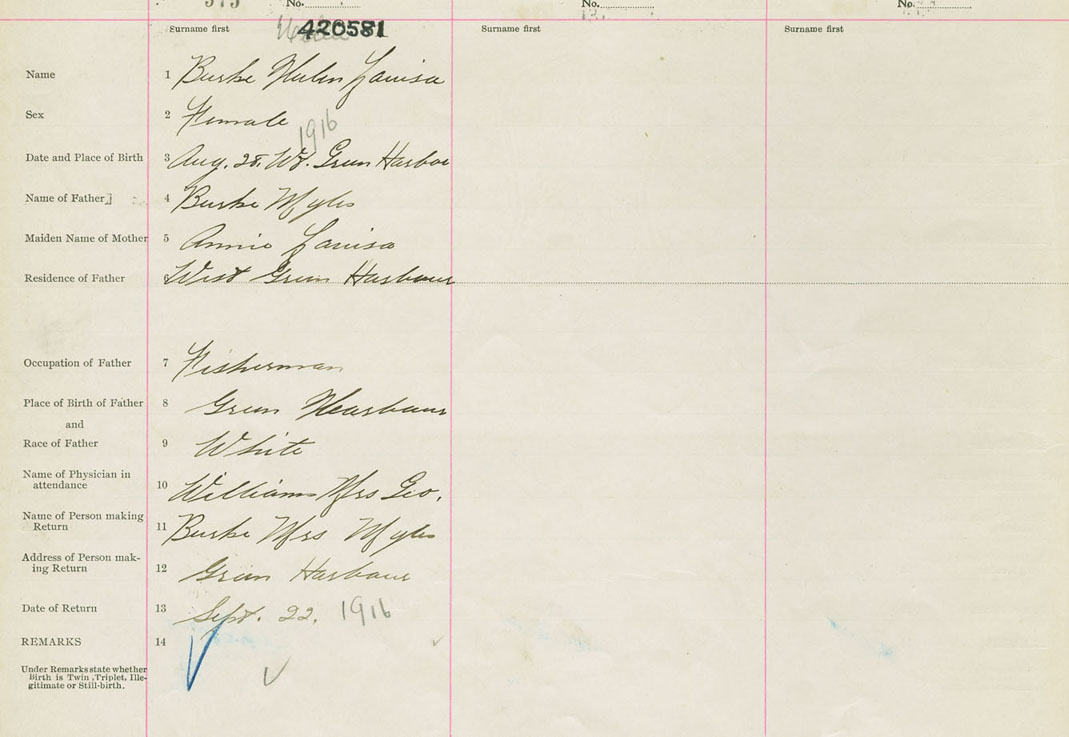 No. No. No.
420581
Surname first Surname first Surname first
Name 1 Burke Helen Louisa
Sex 2 Female
1916
Date and Place of Birth 3 Aug. 28. W. Green Harbou
Name of Father 4 Burke Myles
Maiden Name of Mother 5 Annie Louisa
Residence of Father 6 West Green Harbour
Occupation of Father 7 Fisherman
Place of Birth of Father 8 Green Hearbour
and
Race of Father 9 White
Name of Physician in
attendance 10 Williams Mrs Geo.
Name of Person making
Return 11 Burke Mrs Myles
Address of Person mak-
ing Return 12 Green Harbour
Date of Return 13 Sept. 22. 1916
REMARKS 14
Under Remarks state whether
Birth is Twin, Triplet, Ille-
gitimate or Still-birth.